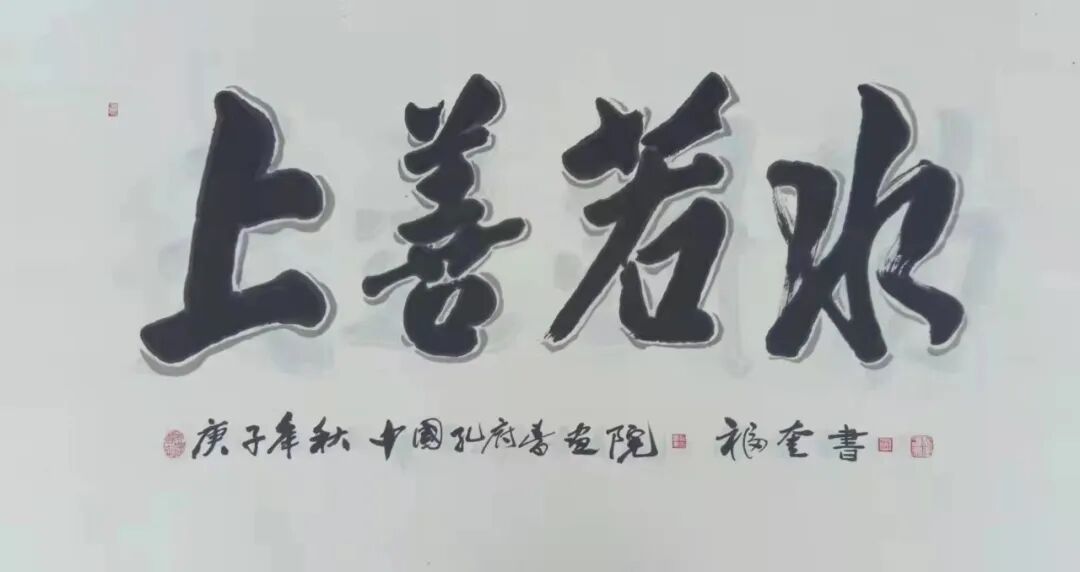 上善若水
庚子年秋 中國孔府書畫院 福奎書